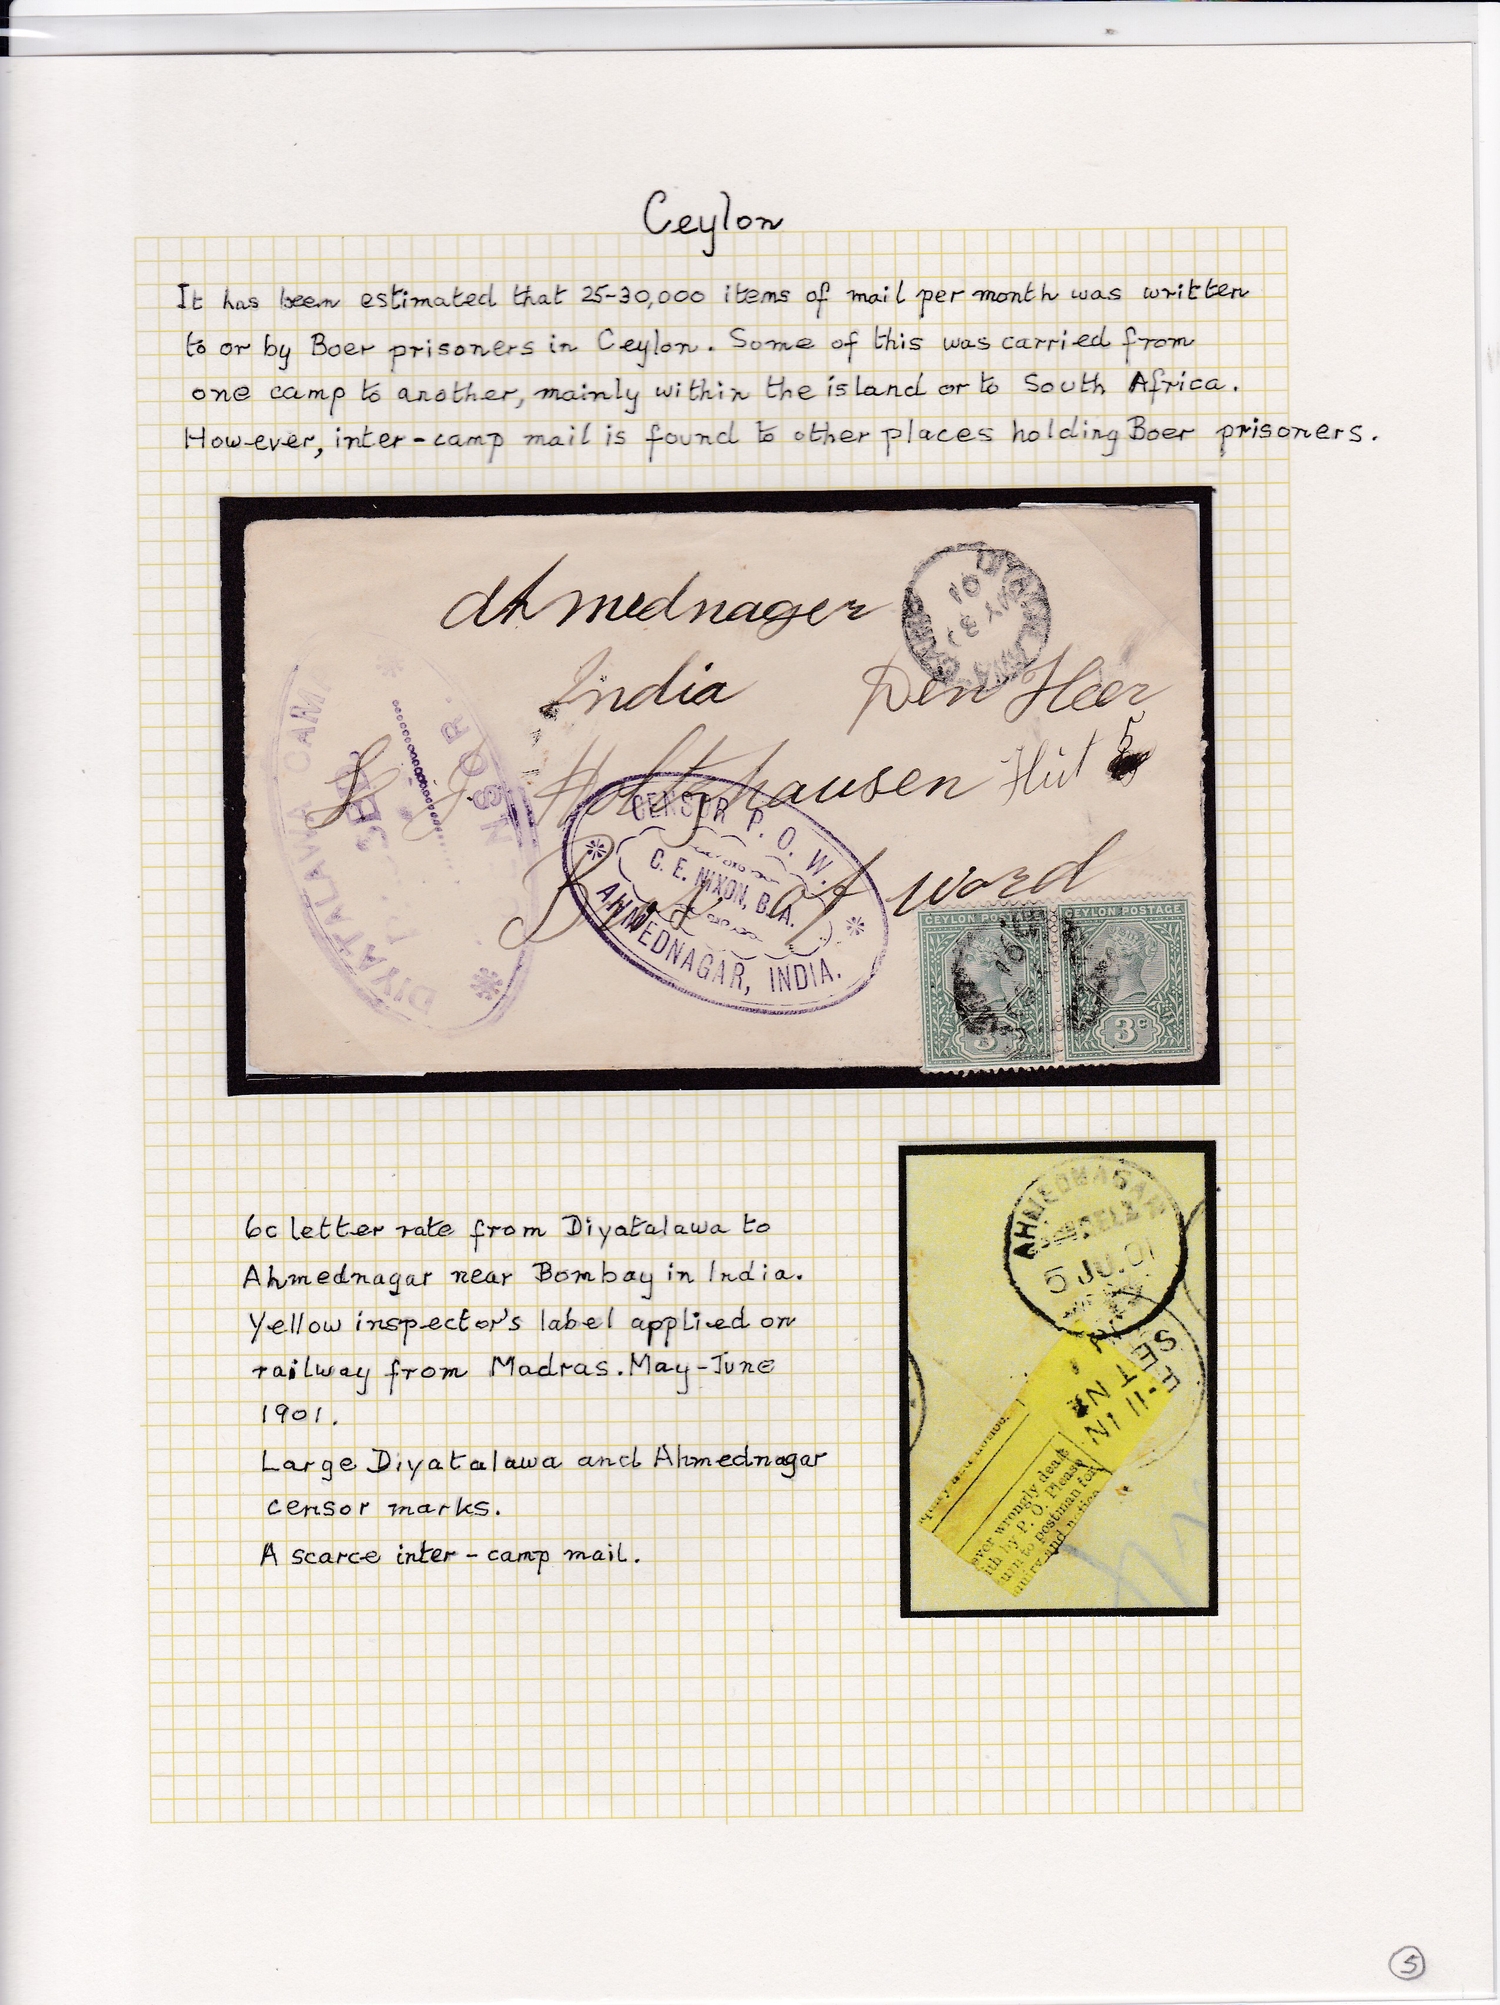 Ceylon
It has been estimated that 25-30,000 items of mail per month was written
to or by Boer prisoners in Ceylon. Some of this was carried from
one camp to another, mainly within the island or to South Africa.
However, inter-camp mail is found to other places holding Boer prisoners.
Ahmednager
India Den Heer
Holtzhausen Hut 5
of word
DIYATALAWA CAM
CENSOR P. O. W.
C. E. NIXON, B.A.
AHMEDNAGAR, INDIA.
CEYLON POSTAGE CEYLON POSTAGE
3c 3c
6c letter rate from Diyatalawa to
Ahmednagar near Bombay in India.
Yellow inspector's label applied on
railway from Madras. May-June
1901.
Large Diyatalawa and Ahmednagar
censor marks.
A scarce inter-camp mail.
AHMEDNAGAR
5 JU.01
SET
ever wrongly dealt
by P. O. Please
to postman for
and notice
5